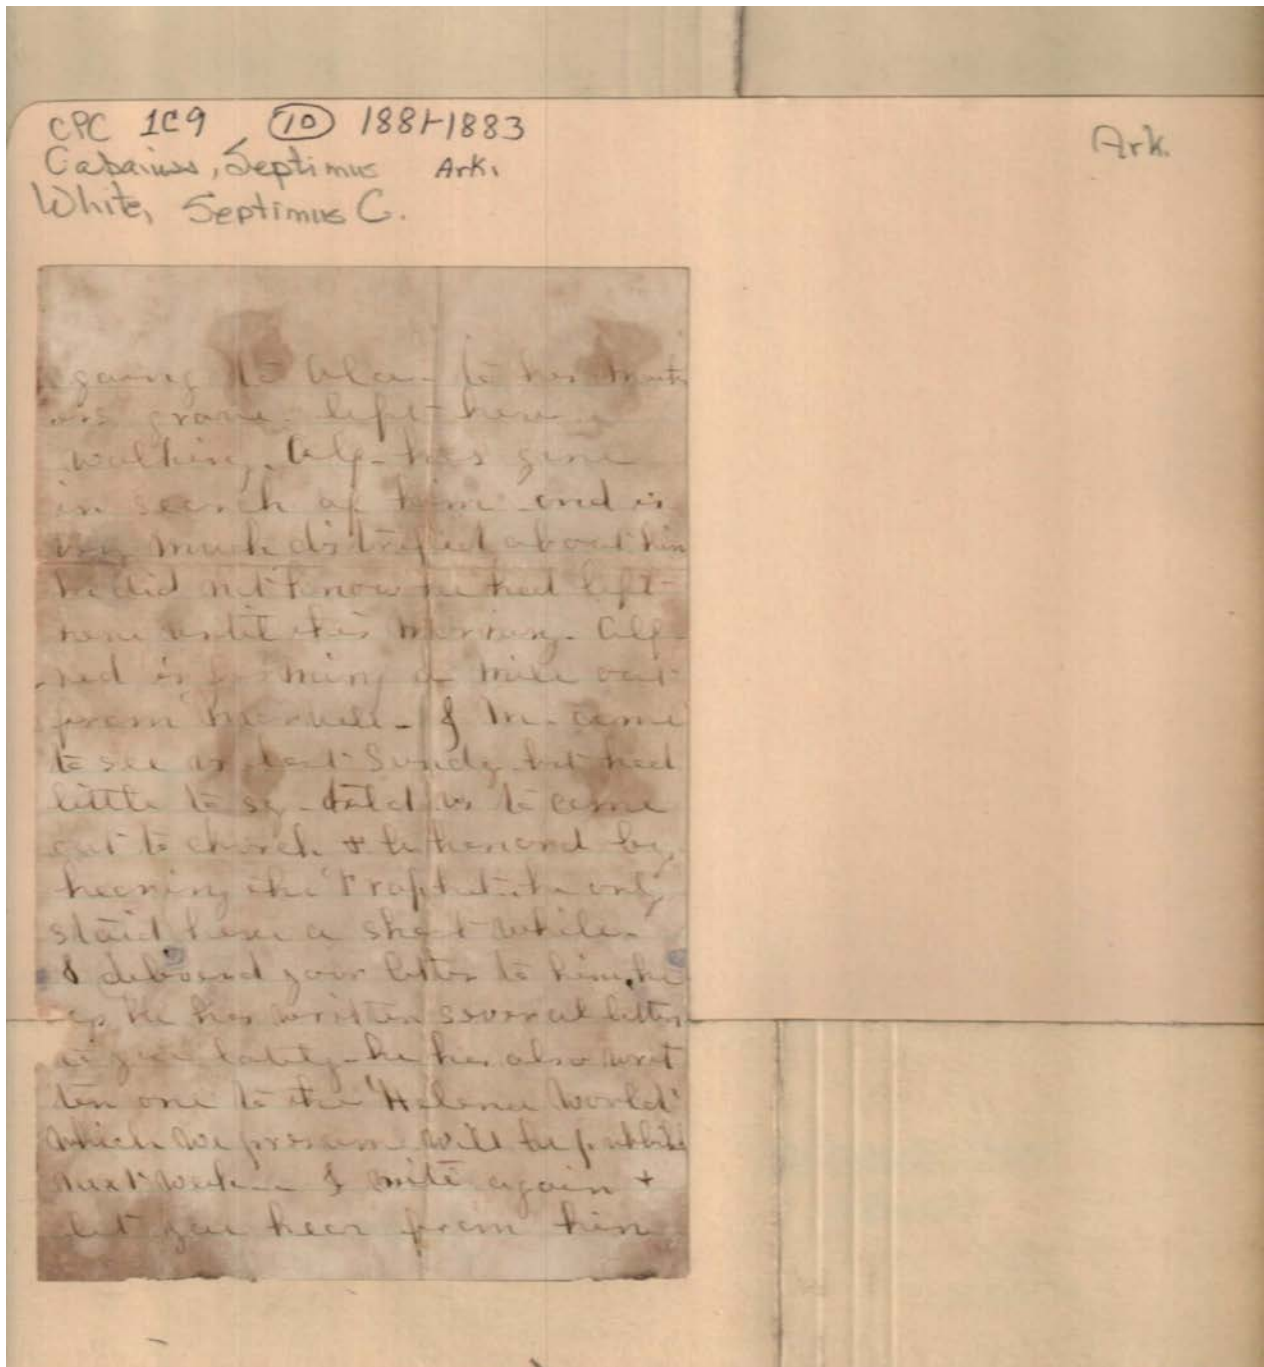 CPC 109 10 1881-1883
Cabaniss, Septimus Ark.
White, Septimus C.
Ark.
going to Ala- to his
grave- left here
walking. Alf- has gone
in search of him and is
much distressed about him
he did not know he had left
here until this morning- Alf-
red is farming a mile out
from - J M- came
to see us last Sunday but had
little to say- told us to come
out to church & be honored by
hearing the Prophet. he only
staid here a short while-
I delivered your letter to him, he
says he has written several letters
to you lately- he has also writ
ten one to the "Helena World"
which we presume will be
next week- I write again &
let you hear from him